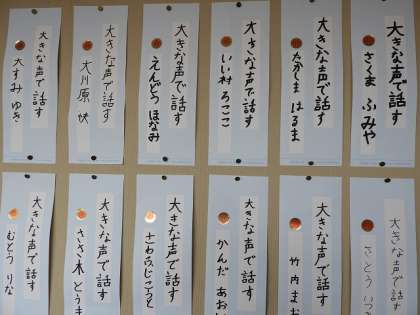 大きな声で話す
さくま ふみや
大きな声で話す
たかしま はるま
大きな声で話す
いい村 ろここ
大きな声で話す
えんどう ほなみ
大きな声で話す
大川原 快
大きな声で話す
大すみ ゆき
大きな声で話す
さとう いつ
大きな声で話す
竹内 まお
大きな声で話す
かんだ あおい
大きな声で話す
大きな声で話す
ささ木 とうま
大きな声で話す
むとう りな